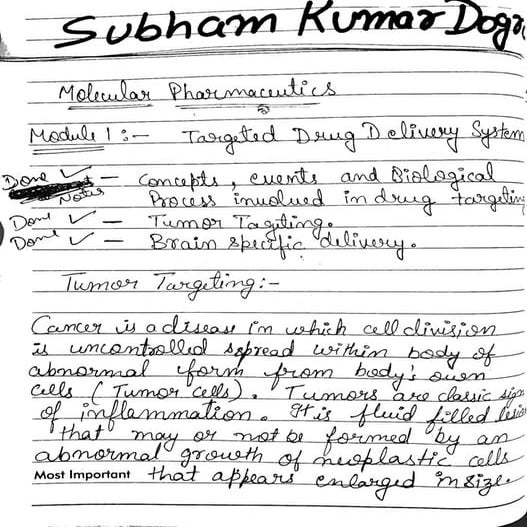 Subham Kumar Dogr
Molecular Pharmaceutics
Module 1 :- Targeted Drug Delivery System
Done ✓ - Concepts, events and Biological
Notes Process involued in drug targeting
Done ✓ - Tumor Tagiting.
Done ✓ - Brain specific delivery.
Tumor Targeting :-
Cancer is a disease in which cell division
is uncontrolled spread within body of
abnormal form from body's own
cells (Tumor cells). Tumors are classic sign
of inflammation. It is fluid filled lesio
that may or not be formed by an
abnormal growth of neoplastic cells
Most Important that appears enlarged in size.